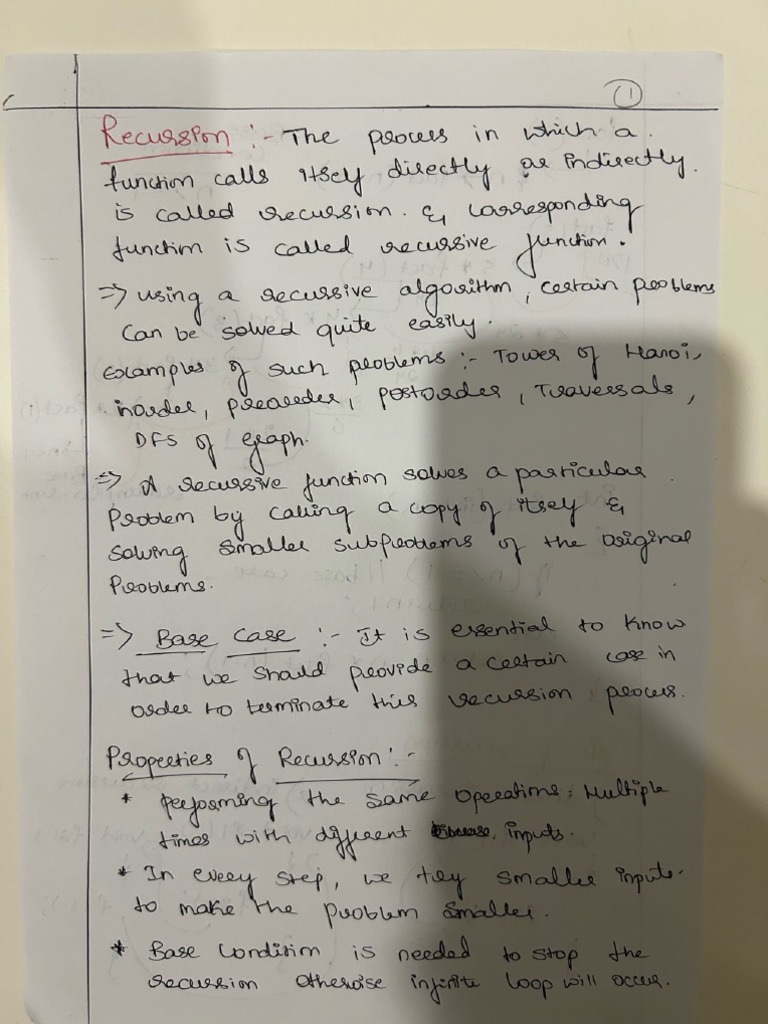 1
Recursion :- The process in which a
function calls itself directly or indirectly.
is called recursion. & corresponding
function is called recursive function.
=> using a recursive algorithm, certain problems
can be solved quite easily.
Examples of such problems :- Tower of Hanoi,
inorder, preorder, postorder, Traversals,
DFS of graph.
=> A recursive function solves a particular
problem by calling a copy of itself &
solving smaller subproblems of the original
problems.
=> Base Case :- It is essential to know
that we should provide a certain case in
order to terminate this recursion process.
Properties of Recursion :-
* performing the same operations, multiple
times with different inputs.
* In every step, we try smaller inputs
to make the problem smaller.
* Base Condition is needed to stop the
recursion otherwise infinite loop will occur.